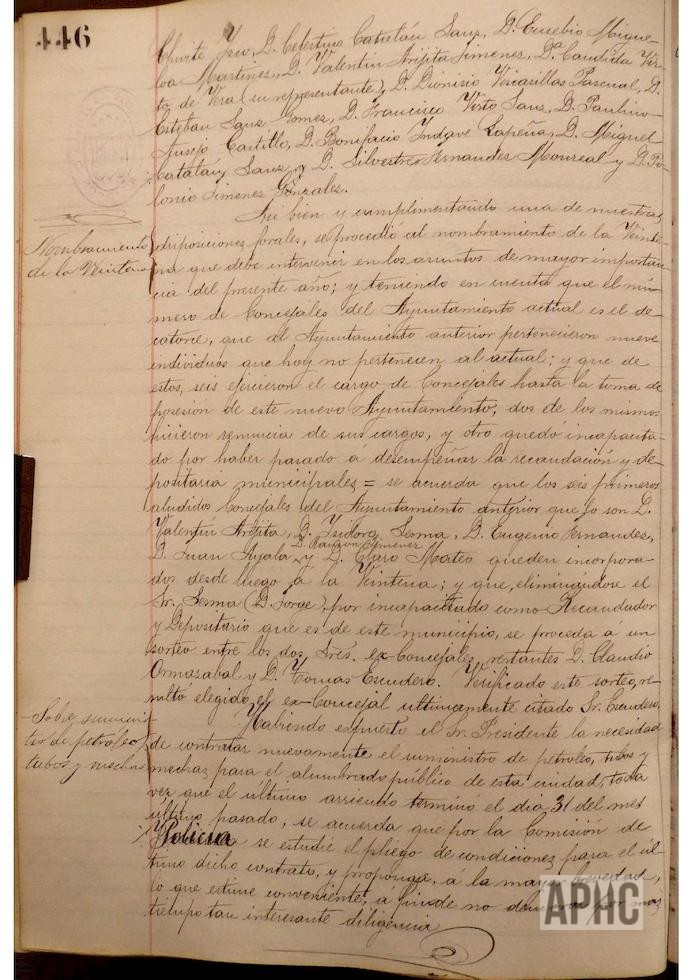 446
Chivite Ysco, D. Celestino Catalán Sanz, D. Eusebio Migue-
loa Martinez, D. Valentin Arijita Jimenez, Dª Candida Vir-
to de Vera (su representante), D. Dionisio Vicarillas Pascual, D.
Esteban Sanz Gomez, D. Francisco Virto Sanz, D. Paulino
Ausejo Castillo, D. Bonifacio Yndave Lapeña, D. Miguel
Catalán Sanz y D. Silvestre Fernandez Monreal y D. Po-
lonio Jimenez Gonzalez.
Nombramiento
de la Veintena
Asi bien y cumplimentando una de nuestras
disposiciones forales, se procedió al nombramiento de la Veinte-
na que debe intervenir en los asuntos de mayor importan-
cia del presente año; y teniendo en cuenta que el nu-
mero de Concejales del Ayuntamiento actual es el de
catorce, que al Ayuntamiento anterior pertenecieron nueve
individuos que hoy no pertenecen al actual; y que de
estos, seis ejercieron el cargo de Concejales hasta la toma de
posesión de este nuevo Ayuntamiento, dos de los mismos
hicieron renuncia de sus cargos, y otro quedó incapacita-
do por haber pasado á desempeñar la recaudación y de-
positaria municipales = se acuerda que los seis primeros
aludidos Concejales del Ayuntamiento anterior que lo son D.
Valentín Arijita, D. Ysidoro Sesma, D. Eugenio Fernandez,
D. Ramon Jimenez
D. Juan Ayala y D. Claro Mateo queden incorpora-
dos desde luego á la Veintena; y que, eliminandose el
Sr. Sesma (D. Jorge), por incapacitado como Recaudador
y Depositario que es de este municipio, se proceda á un
sorteo entre los dos Sres. ex-Concejales restantes D. Claudio
Ormazabal y D. Tomas Escudero. Verificado este sorteo, re-
sultó elegido, el ex-Concejal ultimamente citado Sr. Escudero.
Sobre suminis-
tro de petroleo,
tubos y mechas
Habiendo expuesto el Sr. Presidente la necesidad
de contratar nuevamente el suministro de petroleo, tubos y
mechas para el alumbrado público de esta ciudad, toda
vez que el ultimo arriendo terminó el dia 31 del mes
último pasado, se acuerda que por la Comisión de
Policia se estudie el pliego de condiciones para el ul-
timo dicho contrato, y proponga, á la mayor brevedad,
lo que estime conveniente, á fin de no demorar por mas
tiempo tan interesante diligencia
APHC